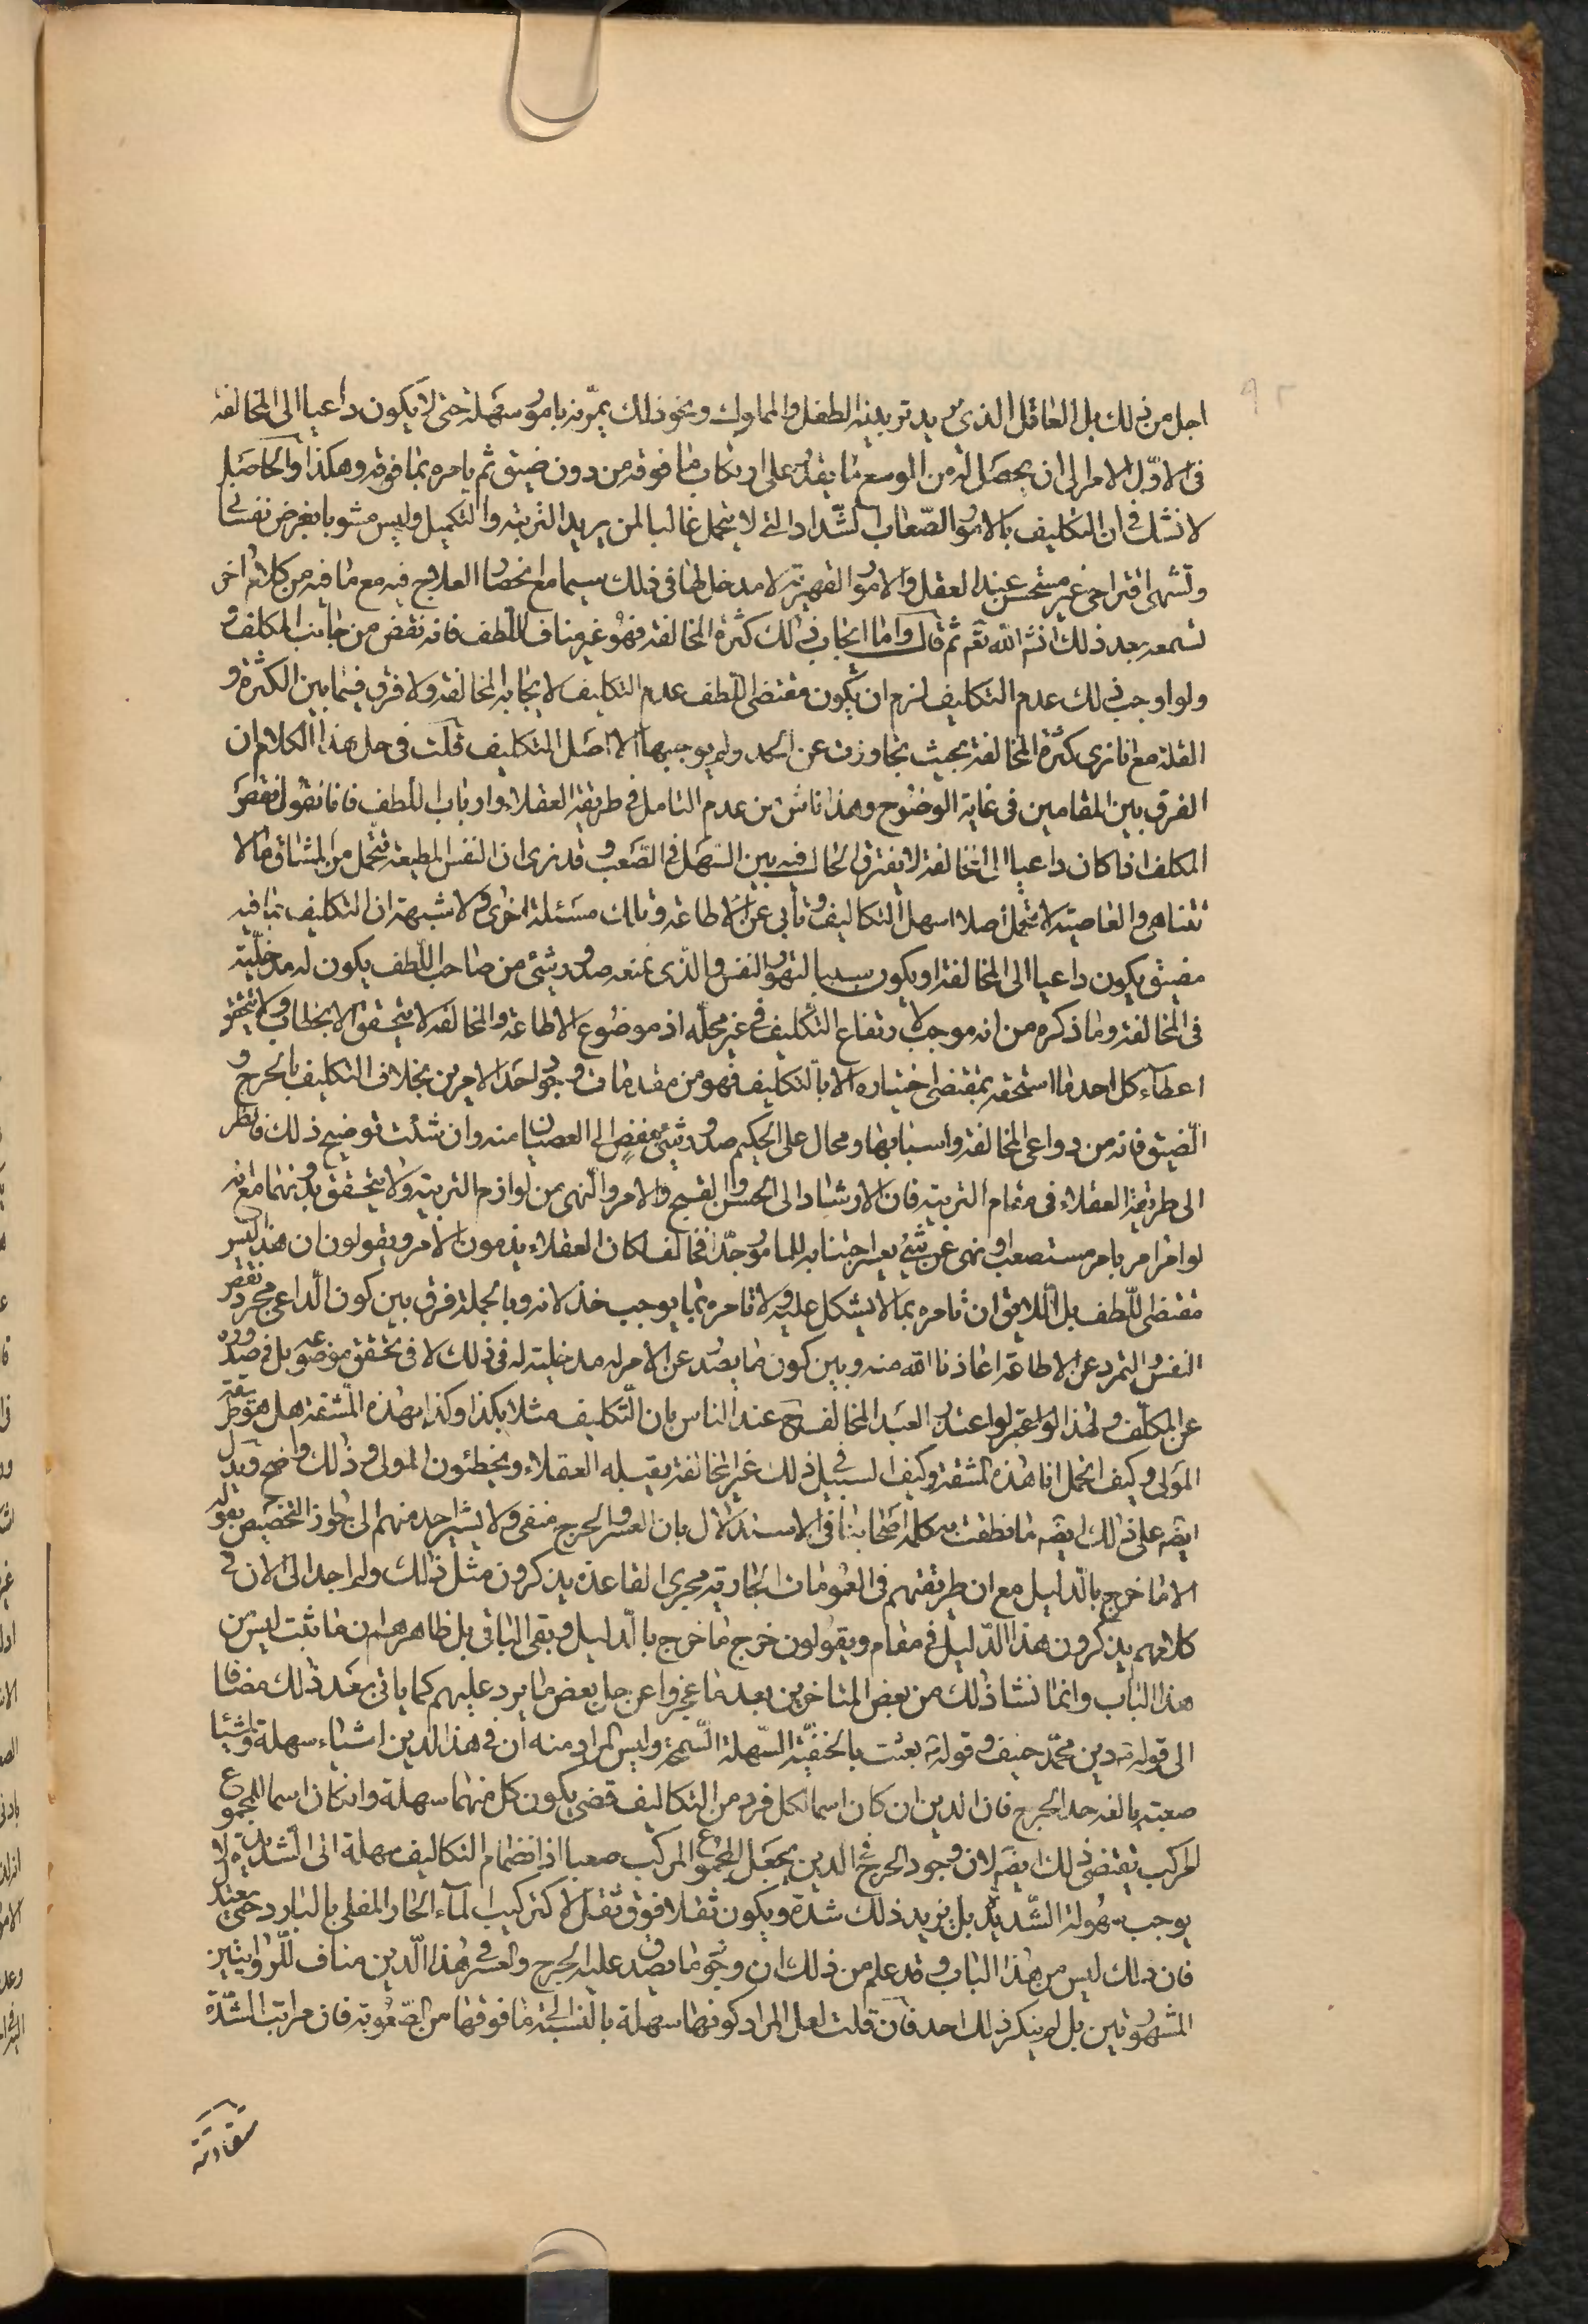 اجل من ذلك بل العاقل الذى يريد تربية الطفل والمملوك ونحو ذلك يمرّنه بامور سهلة حتى لا يكون داعيا الى المخالفة
فى الاوّل الامر الى ان يحصل له من الوسع ما يقدر على ارتكاب ما فوقه من دون ضيق ثم يامره بما فوقه وهكذا والحاصل
لا نشك فى ان التكليف بالامور الصّعاب الشّداد التى لا يتحمل غالبا لمن يريد التربية والتكميل وليس مشوبا بغرض نفسانى
وتشهى اقتراحى غير مستحسن عند العقل والامور القهرية لا مدخل لها فى ذلك سيما مع انحصار العلاج فيه مع ما فيه من كلام اخر
تسمعه بعد ذلك انشاء الله تعم ثم قال واما ايجاب ذلك كثرة المخالفة فهو غير مناف للطف فانه نقض من جانب المكلف
ولو اوجب ذلك عدم التكليف لزم ان يكون مقتضى اللطف عدم التكليف لايجابه المخالفة ولا فرق فيما بين الكثرة و
القلة مع انا نرى كثرة المخالفة بحيث تجاوزت عن الحد ولم يوجبها الا اصل التكليف قلت فى حل هذا الكلام ان
الفرق بين المقامين فى غاية الوضوح وهذا ناش من عدم التامل فى طريقة العقلاء وارباب اللطف فانا نقول نقص
المكلف اذا كان داعيا الى المخالفة لا يفترق الحال فيه بين السّهل والصّعب وقد نرى ان النفس المطيعة يتحمل من المشاق مالا
تتناهى والعاصية لا تتحمل اصلا اسهل التكاليف وتأبى عن الاطاعة وتلك مسئلة اخرى ولا شبهة ان التكليف بما فيه
مضيق يكون داعيا الى المخالفة او يكون سببا لتهور النفس والذى نمنعه صدور شئ من صاحب اللّطف يكون له مدخليّة
فى المخالفة وما ذكره من انه موجب لارتفاع التكليف فى غير محلّه اذ موضوع الاطاعة والمخالفة لا يتحقق الا بخطاب ولا يتحقق
اعطاء كل احد ما استحقه بمقتضى اختياره الا بالتكليف فهو من مقدمات وجود احد الامرين بخلاف التكليف بالحرج و
الضيق فانه من دواعى المخالفة واسبابها ومحال على الحكيم صدور شئ مفض الى العصيان منه وان شئت توضيح ذلك فانظر
الى طريقة العقلاء فى مقام التربية فان الارشاد الى الحسن والقبيح والامر والنهى من لوازم التربية ولا يتحقق بدونهما مع انه
لو امر امر بامر مستصعب او نهى عن شئ يعسر اجتنابه للمامور جدّا فخالف لكان العقلاء يذمون الامر ويقولون ان هذا ليس
مقتضى اللّطف بل اللّايق ان تامره بما لا يشكل عليه ولا تامره بما يوجب خذلانه وبالجملة فرق بين كون الدّاعى مجرد نقص
النفس والتمرد عن الاطاعة اعاذنا الله منه وبين كون ما يصدر عن الامر له مدخلية له فى ذلك لا فى تحقق موضوعه بل فى صدوره
عن المكلّف ولهذا لو اعتذر العبد المخالف ح عند الناس بان التّكليف مثلا بكذا وكذا بهذه المشقة هل هو طريقة
المولى وكيف اتحمل انا هذه المشقة وكيف السبيل فى ذلك غير المخالفة يقبله العقلاء ويخطئون المولى وذلك واضح ويدل
ايضه على ذلك ايضه ما نطقت به كلمة اصحابنا فى الاستدلال بان العسر والحرج منفى ولا يشير احد منهم الى جواز التخصيص بقوله
الا ما خرج بالدليل مع ان طريقتهم فى العمومات الجارية مجرى القاعدة يذكرون مثل ذلك ولم اجد الى الان فى
كلامهم يذكرون هذا الدّليل فى مقام ويقولون خرج ما خرج بالدّليل وبقى الباقى بل ظاهرهم ان ما ثبت ليس من
هذا الباب وانما نشا ذلك من بعض المتاخرين بعد ما عجزوا عن حل بعض ما يرد عليهم كما ياتى بعد ذلك مضافا
الى قوله دين محمّد حنيف وقوله بعثت بالحنفيّة السّهلة السّمحة وليس المراد منه ان فى هذا الدين اشياء سهلة واشياء
صعبة بالغة حد الحرج فان الدين ان كان اسما لكل فرد من التكاليف قضى بكون كل منهما سهلة وان كان اسما للمجموع
المركب يقتضى ذلك ايضه لان وجود الحرج فى الدين يجعل المجموع المركب صعبا اذ انضمام التكاليف سهلة الى الشديدة لا
يوجب سهولة الشّديد بل يزيد ذلك شدة ويكون ثقلا فوق ثقل لا كتركيب الماء الحار المغلى بالبارد حتى يعتدل
فان ذلك ليس من هذا الباب وقد علم من ذلك ان وجود ما يصدق عليه الحرج والعسر فى هذا الدّين مناف للرّوايتين
المشهورتين بل لم ينكر ذلك احد فان قلت لعل المراد كونها سهلة بالنسبة الى ما فوقها من الصّعوبة فان مراتب الشدّة